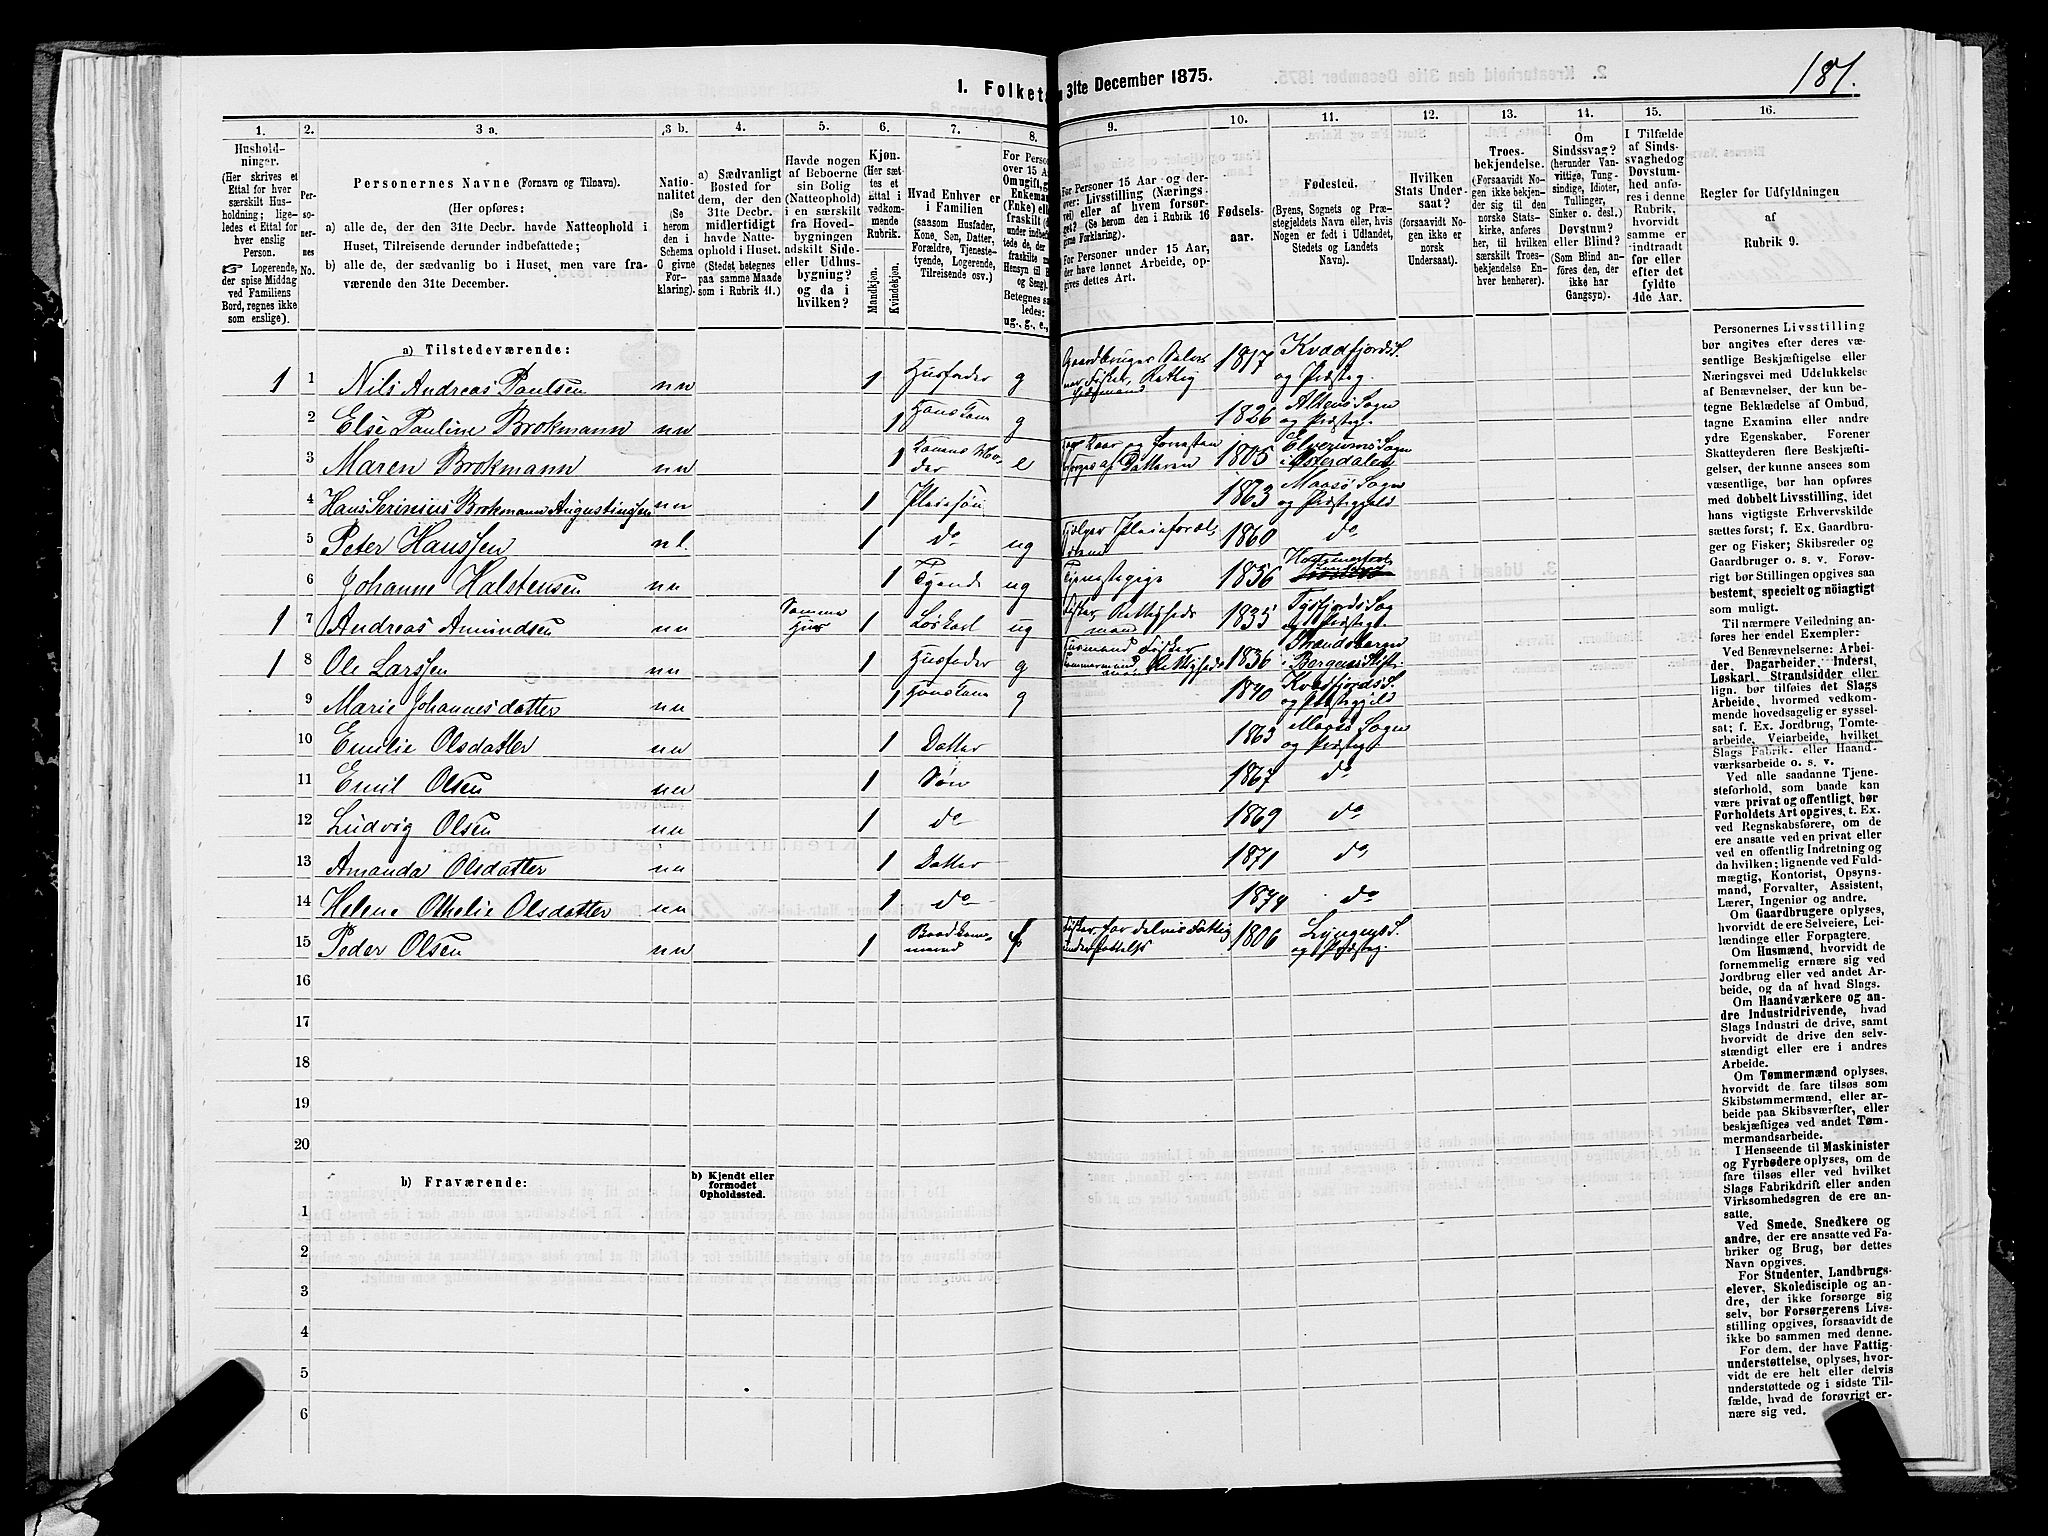 181.
1. Folketæ
31te December 1875.
1.
2.
3 a.
3 b.
4.
5.
6.
7.
8.
9.
10.
11.
12.
13.
14.
15.
16.
Hushold-
ninger.
(Her skrives et
Ettal for hver
særskilt Hus-
holdning; lige-
ledes et Ettal for
hver enslig
Person.
Logerende,
der spise Middag
ved Familiens
Bord, regnes ikke
som enslige).
Per-
so-
ner-
nes
No.
Personernes Navne (Fornavn og Tilnavn).
(Her opføres:
a) alle de, der den 31te Decbr. havde Natteophold i
Huset, Tilreisende derunder indbefattede;
b) alle de, der sædvanlig bo i Huset, men vare fra-
værende den 31te December.
Natio-
nalitet
(Se
herom
den i
Schema
C givne
For-
klaring).
a) Sædvanligt
Bosted for
dem, der den
31te Decbr.
midlertidigt
havde Natte-
ophold i Huset.
(Stedet betegnes
paa samme Maade
som i Rubrik 11.)
Havde nogen
af Beboerne
sin Bolig
(Natteophold)
i en særskilt
fra Hoved-
bygningen
adskilt Side-
eller Udhus-
bygning?
og da i
hvilken?
Kjøn.
(Her sæt-
tes et
Ettal i
vedkom-
mende
Rubrik.
Mandkjøn.
Kvindekjøn.
Hvad Enhver er
i Familien
(saasom Husfader,
Kone, Søn, Datter,
Forældre, Tjeneste-
tyende, Logerende,
Tilreisende osv.)
For Perso
over 15 A
Om ugift, g
Enkema
(Enke) elle
fraskilt
Betegnes sa
ledes:
ug., g., e.,
For Personer 15 Aar og der-
over: Livsstilling (Nærings-
vei) eller af hvem forsør-
get? (Se herom den i Rubrik 16
givne Forklaring).
For Personer under 15 Aar,
der have lønnet Arbeide, op-
gives dettes Art.
Fødsels-
aar.
Fødested.
(Byens, Sognets og Præ-
stegjeldets Navn eller, hvis
Nogen er født i Udlandet,
Stedets og Landets
Navn).
Hvilken
Stats Under-
saat?
(forsaavidt No-
gen ikke er
norsk
Undersaat).
Troes-
bekjendelse.
(Forsaavidt No-
gen ikke bekjen-
der sig til den
norske Stats-
kirke, anføres
her, til hvilken
særskilt Troes-
bekjendelse En-
hver henhører).
Om
Sindssvag?
(herunder Van-
vittige, Tung-
sindige, Idioter,
Tullinger,
Sinker o. desl.)
Døvstum?
eller Blind?
(Som Blind an-
føres den, der
ikke har
Gangsyn).
I Tilfælde
af Sinds-
svaghed og
Døvstum-
hed anfø-
res i denne
Rubrik,
hvorvidt
samme er
indtraadt
før eller ef-
ter det
fyldte
4de Aar.
Regler for Udfyldningen
af
Rubrik 9.
a) Tilstedeværende:
1 1 Nils Andreas Paulsen nn 1 Husfader g Gaardbruger Fisker, Rettig 1817 Kvædfjords S. og Præsteg.
2 Else Pauline Brokmann nn 1 Hans Kone g 1826 Altens Sogn og Præsteg.
3 Maren Brokmann nn 1 Konens Moder e Forsørges af Datteren 1805 Elverums Sogn i Østerdalen
4 Hans Brokmann Augustinssen nn 1 Pleiesøn 1863 Maasø Sogn og Præstegjeld
5 Peter Hanssen nl. 1 do ug Hjelper Pleieforæl- 1860 do
6 Johanne Halstensen nn 1 Tyende ug Tjenestepige 1856
1 7 Andreas Amundsen nn Samme Huus 1 Løskarl ug Fisker, Rettigheds mand 1835 Tysfjords Sog og Præsteg.
1 8 Ole Larssen nn 1 Husfader g Husmand Fisker Tømmermand, Rettigheds mand 1836 Strandebarm i Bergens Stift.
9 Marie Johannesdatter nn 1 Hans Kone g 1840 Kvædfjords S. og Præstegjeld
10 Emilie Olsdatter nn 1 Datter 1863 Maasø Sogn og Præsteg.
11 Emil Olsen nn 1 Søn 1867 do
12 Ludvig Olsen nn 1 do 1869 do
13 Amanda Olsdatter nn 1 Datter 1871 do
14 Helene Othelie Olsdatter nn 1 do 1874 do
15 Peder Olsen nn 1 Fisker, for delvis Fattig understøttelse 1806 Lyngens S. og Præsteg.
16
17
18
19
20
b) Fraværende:
b) Kjendt eller
formodet
Opholdssted.
1
2
3
4
5
6
Personernes Livsstilling
bør angives efter deres væ-
sentlige Beskjæftigelse eller
Næringsvei med Udelukkelse
af Benævnelser, der kun be-
tegne Beklædelse af Ombud,
tagne Examina eller andre
ydre Egenskaber. Forener
Skatteyderen flere Beskjæfti-
gelser, der kunne ansees som
væsentlige, bør han opføres
med dobbelt Livsstilling, idet
hans vigtigste Erhvervskilde
sættes først; f. Ex. Gaardbru-
ger og Fisker; Skibsreder og
Gaardbruger o. s. v. Forøv-
rigt bør Stillingen opgives saa
bestemt, specielt og nøiagtigt
som muligt.
Til nærmere Veiledning an-
føres her endel Exempler:
Ved Benævnelserne: Arbei-
der, Dagarbeider, Inderst,
Løskarl, Strandsidder eller
lign. bør tilføies det Slags
Arbeide, hvormed vedkom-
mende hovedsagelig er syssel-
sat; f. Ex. Jordbrug, Tomte-
arbeide, Veiarbeide, hvilket
Slags Fabrik- eller Haand-
værksarbeide o. s. v.
Ved alle saadanne Tjene-
steforhold, som baade kan
være privat og offentligt, bør
Forholdets Art opgives, t. Ex.
ved Regnskabsførere, om de
ere ansatte ved en privat eller
ved en offentlig Indretning og
da hvilken; lignende ved Fuld-
mægtig, Kontorist, Opsyns-
mand, Forvalter, Assistent,
Lærer, Ingeniør og andre.
Om Gaardbrugere oplyses,
hvorvidt de ere Selveiere, Lei-
lændinge eller Forpagtere.
Om Husmænd, hvorvidt de
fornemmelig ernære sig ved
Jordbrug eller ved andet Ar-
beide, og da af hvad Slags.
Om Haandværkere og an-
dre Industridrivende, hvad
Slags Industri de drive, samt
hvorvidt de drive den selv-
stændigt eller ere i andres
Arbeide.
Om Tømmermænd oplyses,
hvorvidt de fare tilsøs som
Skibstømmermænd, eller ar-
beide paa Skibsværfter, eller
beskjæftiges ved andet Tøm-
mermandsarbeide.
I Henseende til Maskinister
og Fyrbødere oplyses, om de
fare tilsøs eller ved hvilket
Slags Fabrikdrift eller anden
Virksomhedsgren de ere an-
satte.
Ved Smede, Snedkere og
andre, der ere ansatte ved Fa-
briker og Brug, bør dettes
Navn opgives.
For Studenter, Landbrugs-
elever, Skoledisciple og an-
dre, der ikke forsørge sig
selv, bør Forsørgerens Livs-
stilling opgives, forsaavidt de
ikke bo sammen med denne.
For dem, der have Fattig-
understøttelse, oplyses, hvor-
vidt de ere helt eller delvis
understøttede og i sidste Til-
fælde, hvad de forøvrigt er-
nære sig ved.